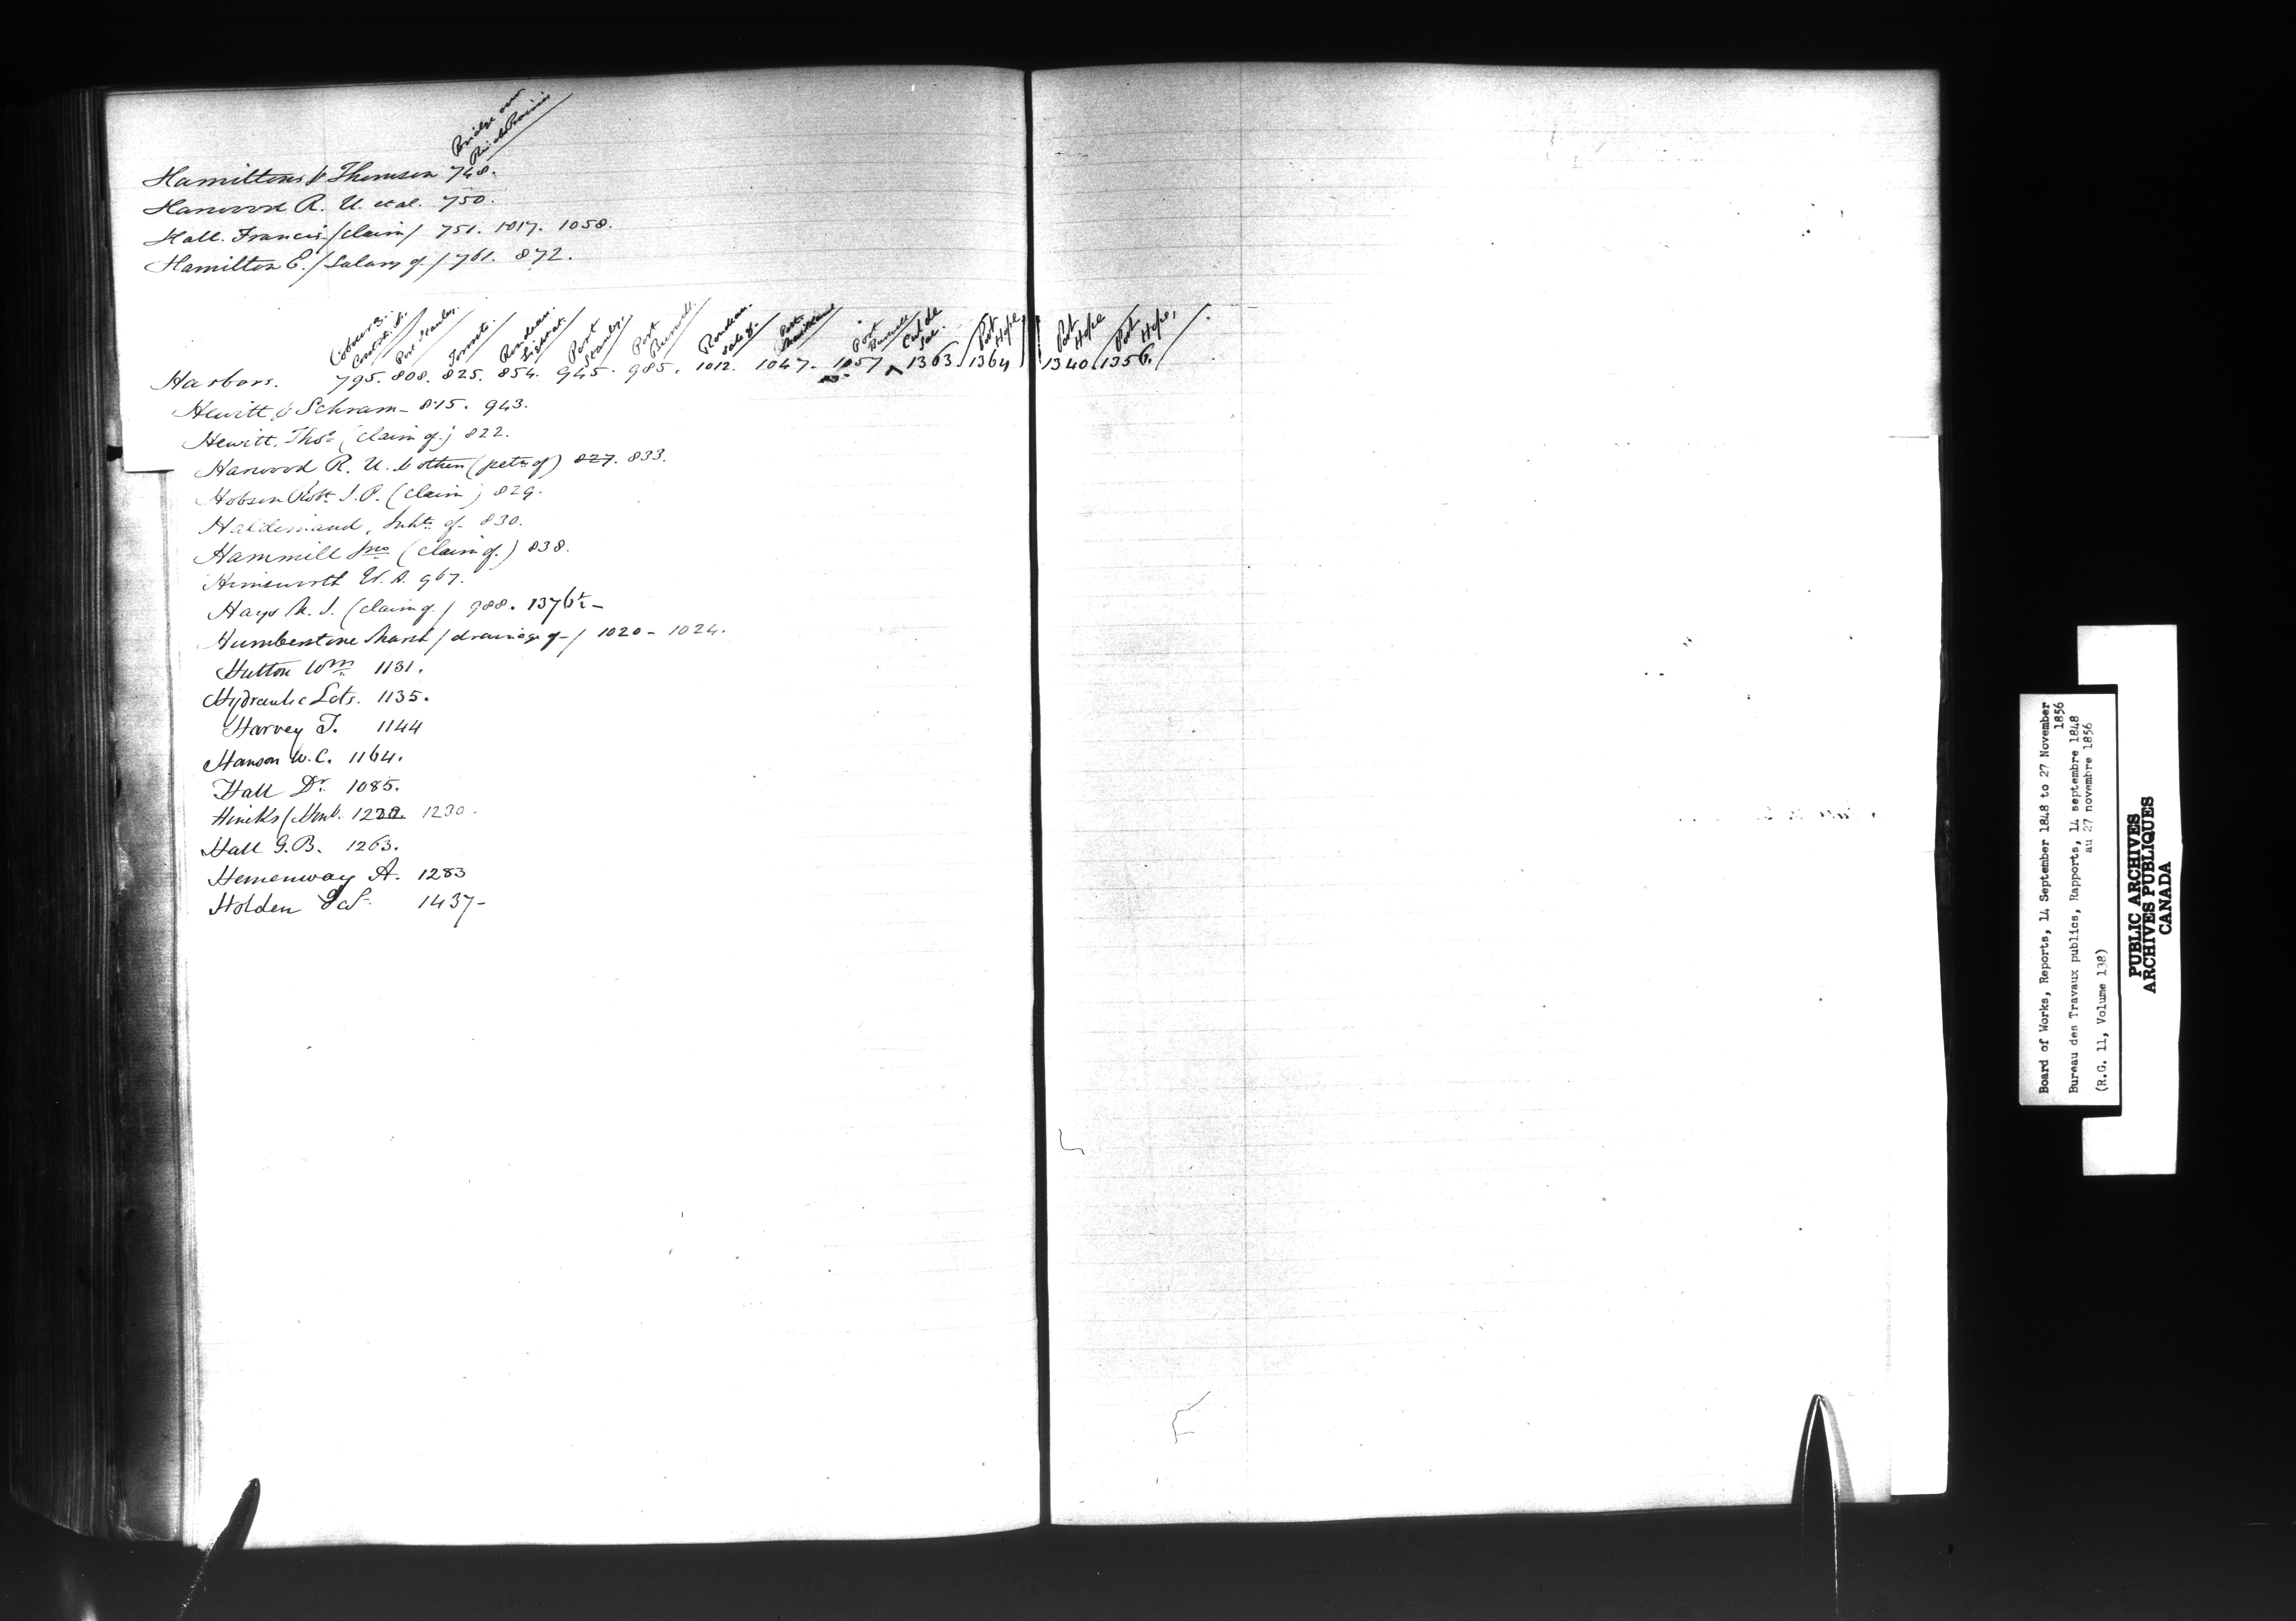 Bridge over
Hamiltons & Thomson 748.
Harwood R. U. et al. 750.
Hall. Francis /claim/ 751. 1017. 1058.
Hamilton E. /Salary of/ 761. 872.
Cobourg. Port Stanley. Toronto. Rondeau. Light at. Port Stanley. Port Burwell. Rondeau. Sale of. Port Maitland Port Burwell Cul de Sac. Port Hope Port Hope Port Hope,
Harbors. 795. 808. 825. 854. 945. 985. 1012. 1047. 1057 1363 1364 1340 1356.
Hewitt & Schram - 815. 943.
Hewitt, Thos (claim of.) 822.
Harwood R. U. & others (petn of) 827. 833.
Hobson Robt J.P. (claim) 829.
Haldimand, Inhts of - 830.
Hammill Jno (claim of.) 838.
Himsworth W. A. 967.
Hays M. J. (claim of.) 988. 1376½ -
Humberstone Marsh / drainage of - / 1020 - 1024.
Hutton Wm 1131.
Hydraulic Lots. 1135.
Harvey J. 1144
Hanson W. C. 1164.
Hall Dr. 1085.
Hincks (Honb. 1230.
Hall G. B. 1263.
Hemenway A. 1283
Holden 1437 -
Board of Works, Reports, 14 September 1848 to 27 November
1856
Bureau des Travaux publics, Rapports, 14 septembre 1848
au 27 novembre 1856
(R.G. 11, Volume 138)
PUBLIC ARCHIVES
ARCHIVES PUBLIQUES
CANADA